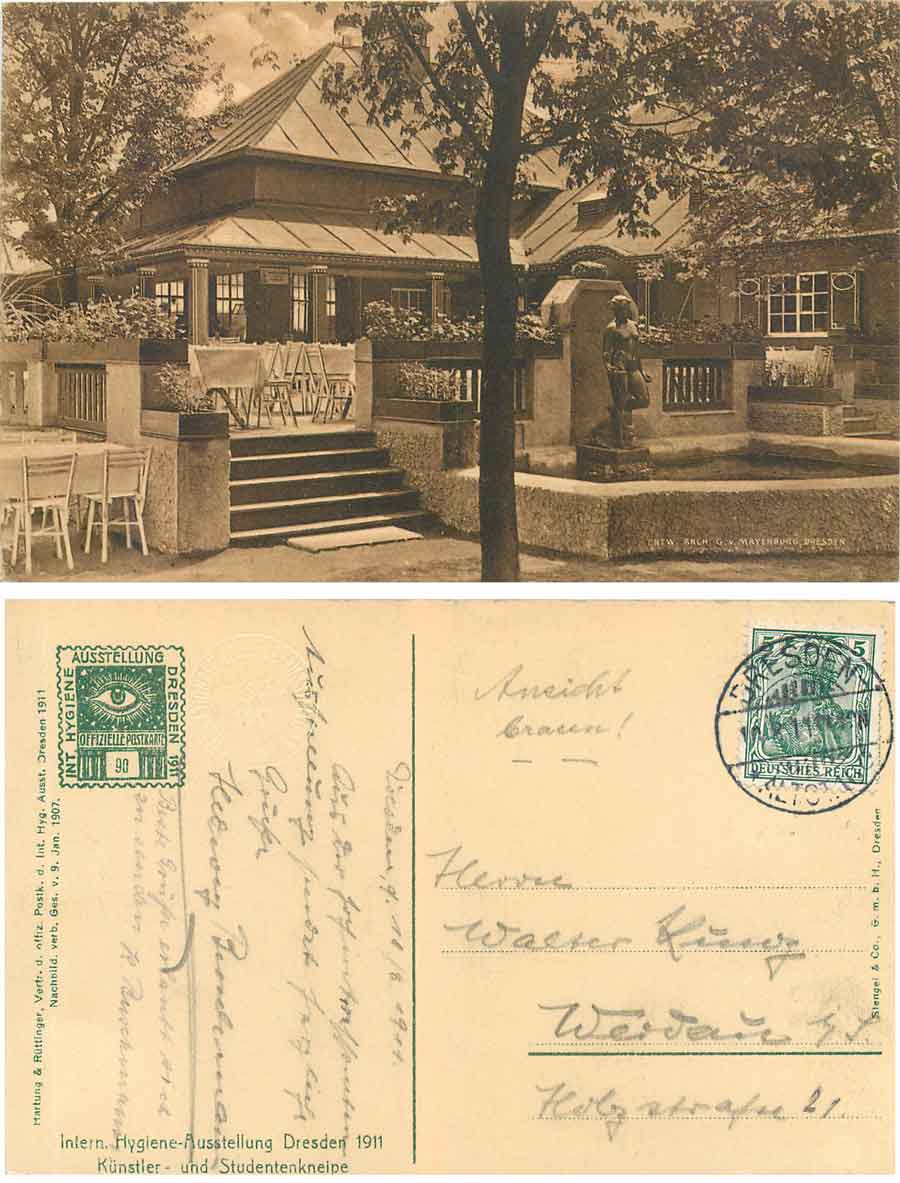 ENTW. ARCH. G. v. MAYENBURG, DRESDEN
INT. HYGIENE AUSSTELLUNG DRESDEN 1911
OFFIZIELLE POSTKARTE
90
Hartung & Rüttinger, Vertr. d. offiz. Postk. d. Int. Hyg. Ausst. Dresden 1911
Nachbild. verb. Ges. v. 9. Jan. 1907.
Dresden d. 10/8 1911.
Aus der
Ausstellung sendet herzliche
Grüße
Hedwig
Beste Grüße erlaubt sich
zu senden
Intern. Hygiene-Ausstellung Dresden 1911
Künstler- und Studentenkneipe
Ansicht
braun!
5 5
DEUTSCHES REICH
DRESDEN
ALTST.
Herrn
Walter
Holzstraße 21.
Stengel & Co., G. m. b. H., Dresden